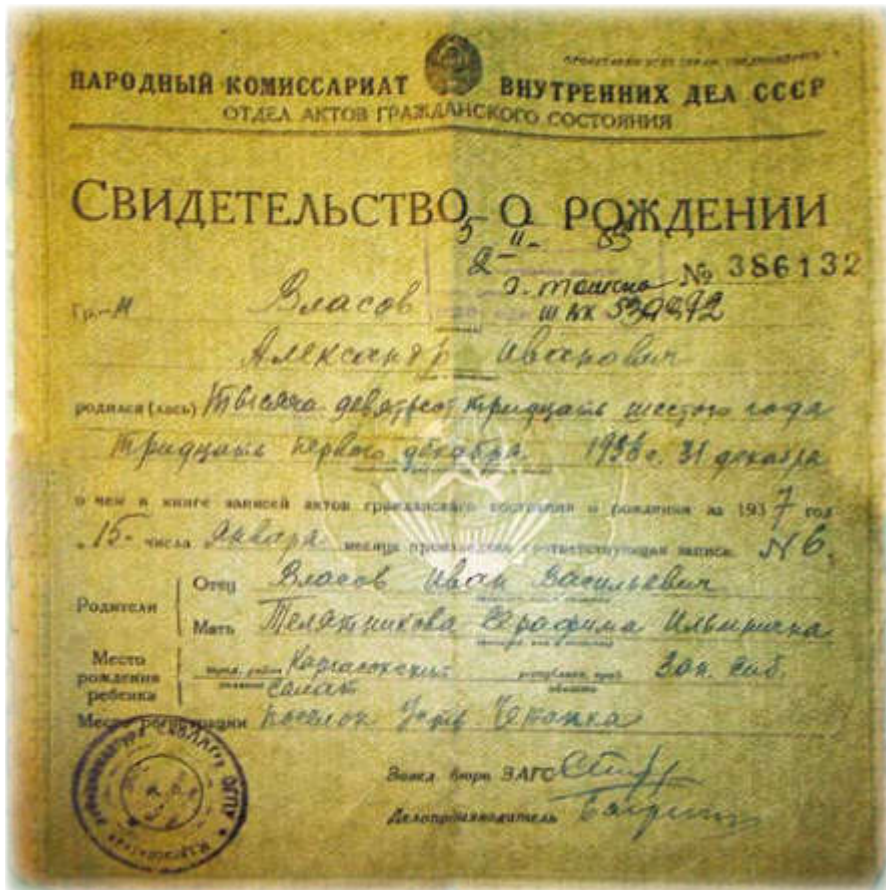 НАРОДНЫЙ КОМИССАРИАТ ВНУТРЕННИХ ДЕЛ СССР
ОТДЕЛ АКТОВ ГРАЖДАНСКОГО СОСТОЯНИЯ
СВИДЕТЕЛЬСТВО О РОЖДЕНИИ
№ 386132
Гр.-н Власов
Александр Иванович
родился (лась) тысяча девятьсот тридцать шестого года
тридцать первого декабря 1936 г. 31 декабря
о чем в книге записей актов гражданского состояния о рождении за 1937 год
„15" числа января месяца произведена соответствующая запись № 6.
Родители
Отец Власов Иван Васильевич
Мать Телятникова Серафима Ильинична
Место рождения ребенка
Каргасокский Зап. Сиб.
Место регистрации поселок Усть Чижапка
Завед. бюро ЗАГС
Делопроизводитель